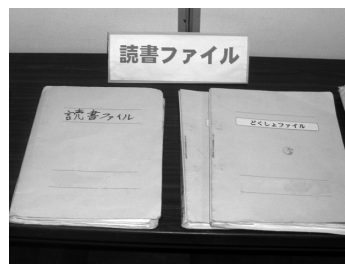 読書ファイル
読書ファイル
どくしょファイル